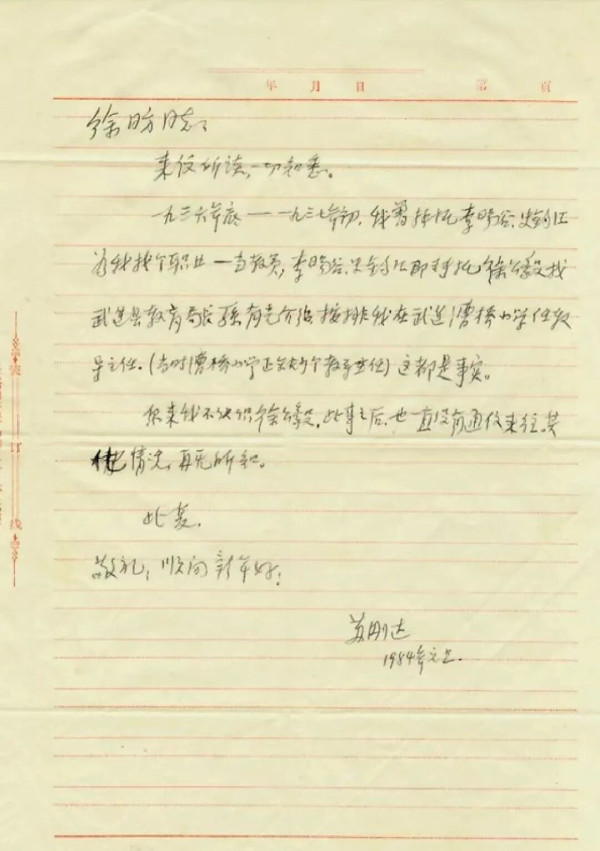 年 月 日 第 页
徐昉同志:
来信所谈,一切知悉。
一九三六年底——一九三七年初,我曾拜托李晓谷、史
为我找个职业——当教员,李晓谷、即转托徐公毅找
武进县教育局长孫有光介绍,按排我在武进漕桥小学任教
导主任。(当时漕桥小学正缺少个教导主任)这都是事实。
原来我不认识徐公毅,此事之后,也一直没有通信来往。其
他情况,再无所知。
此复。
敬礼,顺问新年好!
苏刚达
1984年元.
装 订 线